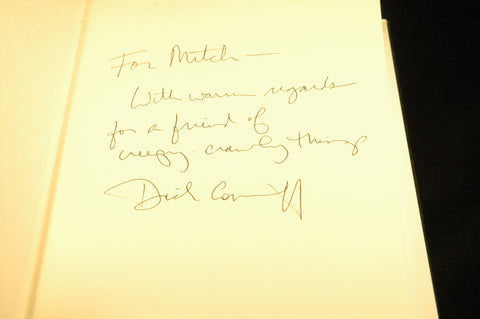 For Mitch —
With warm regards
for a friend of
creepy-crawly things
Dick Conniff